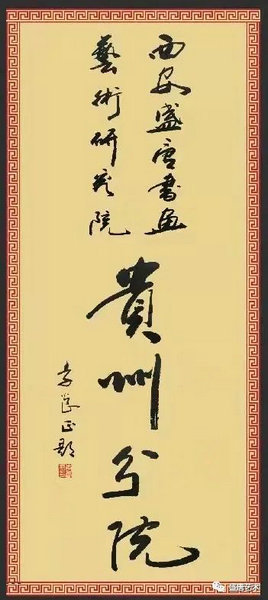 西安盛唐書画
藝術研究院
貴州分院
题